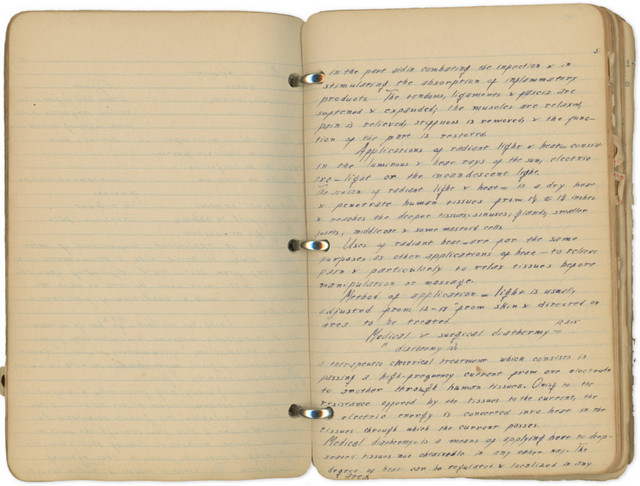 5.
in the part aid in combating the infection & in
stimulating the absorption of inflammatory
products. The tendons, ligaments & fascia are
softened & expanded; the muscles are relaxed,
pain is relieved, stiffness is removed & the func-
tion of the part is restored.
Applications of radiant light & heat - consist
in the luminous & heat rays of the sun, electric
arc - light or the incandescent light.
The action of radiant light & heat - is a dry heat
& penetrate human tissues from to inches
& reaches the deeper tissues, sinuses, glands, smaller
joints, middle ear & some mastoid cells.
Uses of radiant heat - are for the same
purposes as other applications of heat - to relieve
pain & particularly to relax tissues before
manipulation or massage.
Method of application - light is usually
adjusted from 12-18" from skin & directed on
area to be treated.
Medical & surgical diathermy =
" diathermy is
a therapeutic electrical treatment which consists in
passing a high-frequency current from one electrode
to another through human tissues. Owing to the
resistance offered by the tissues to the current, the
electric energy is converted into heat in the
tissues through which the current passes.
Medical diathermy - is a means of applying heat to deep-
seated tissues not obtainable in any other way. The
degree of heat can be regulated & localized in any